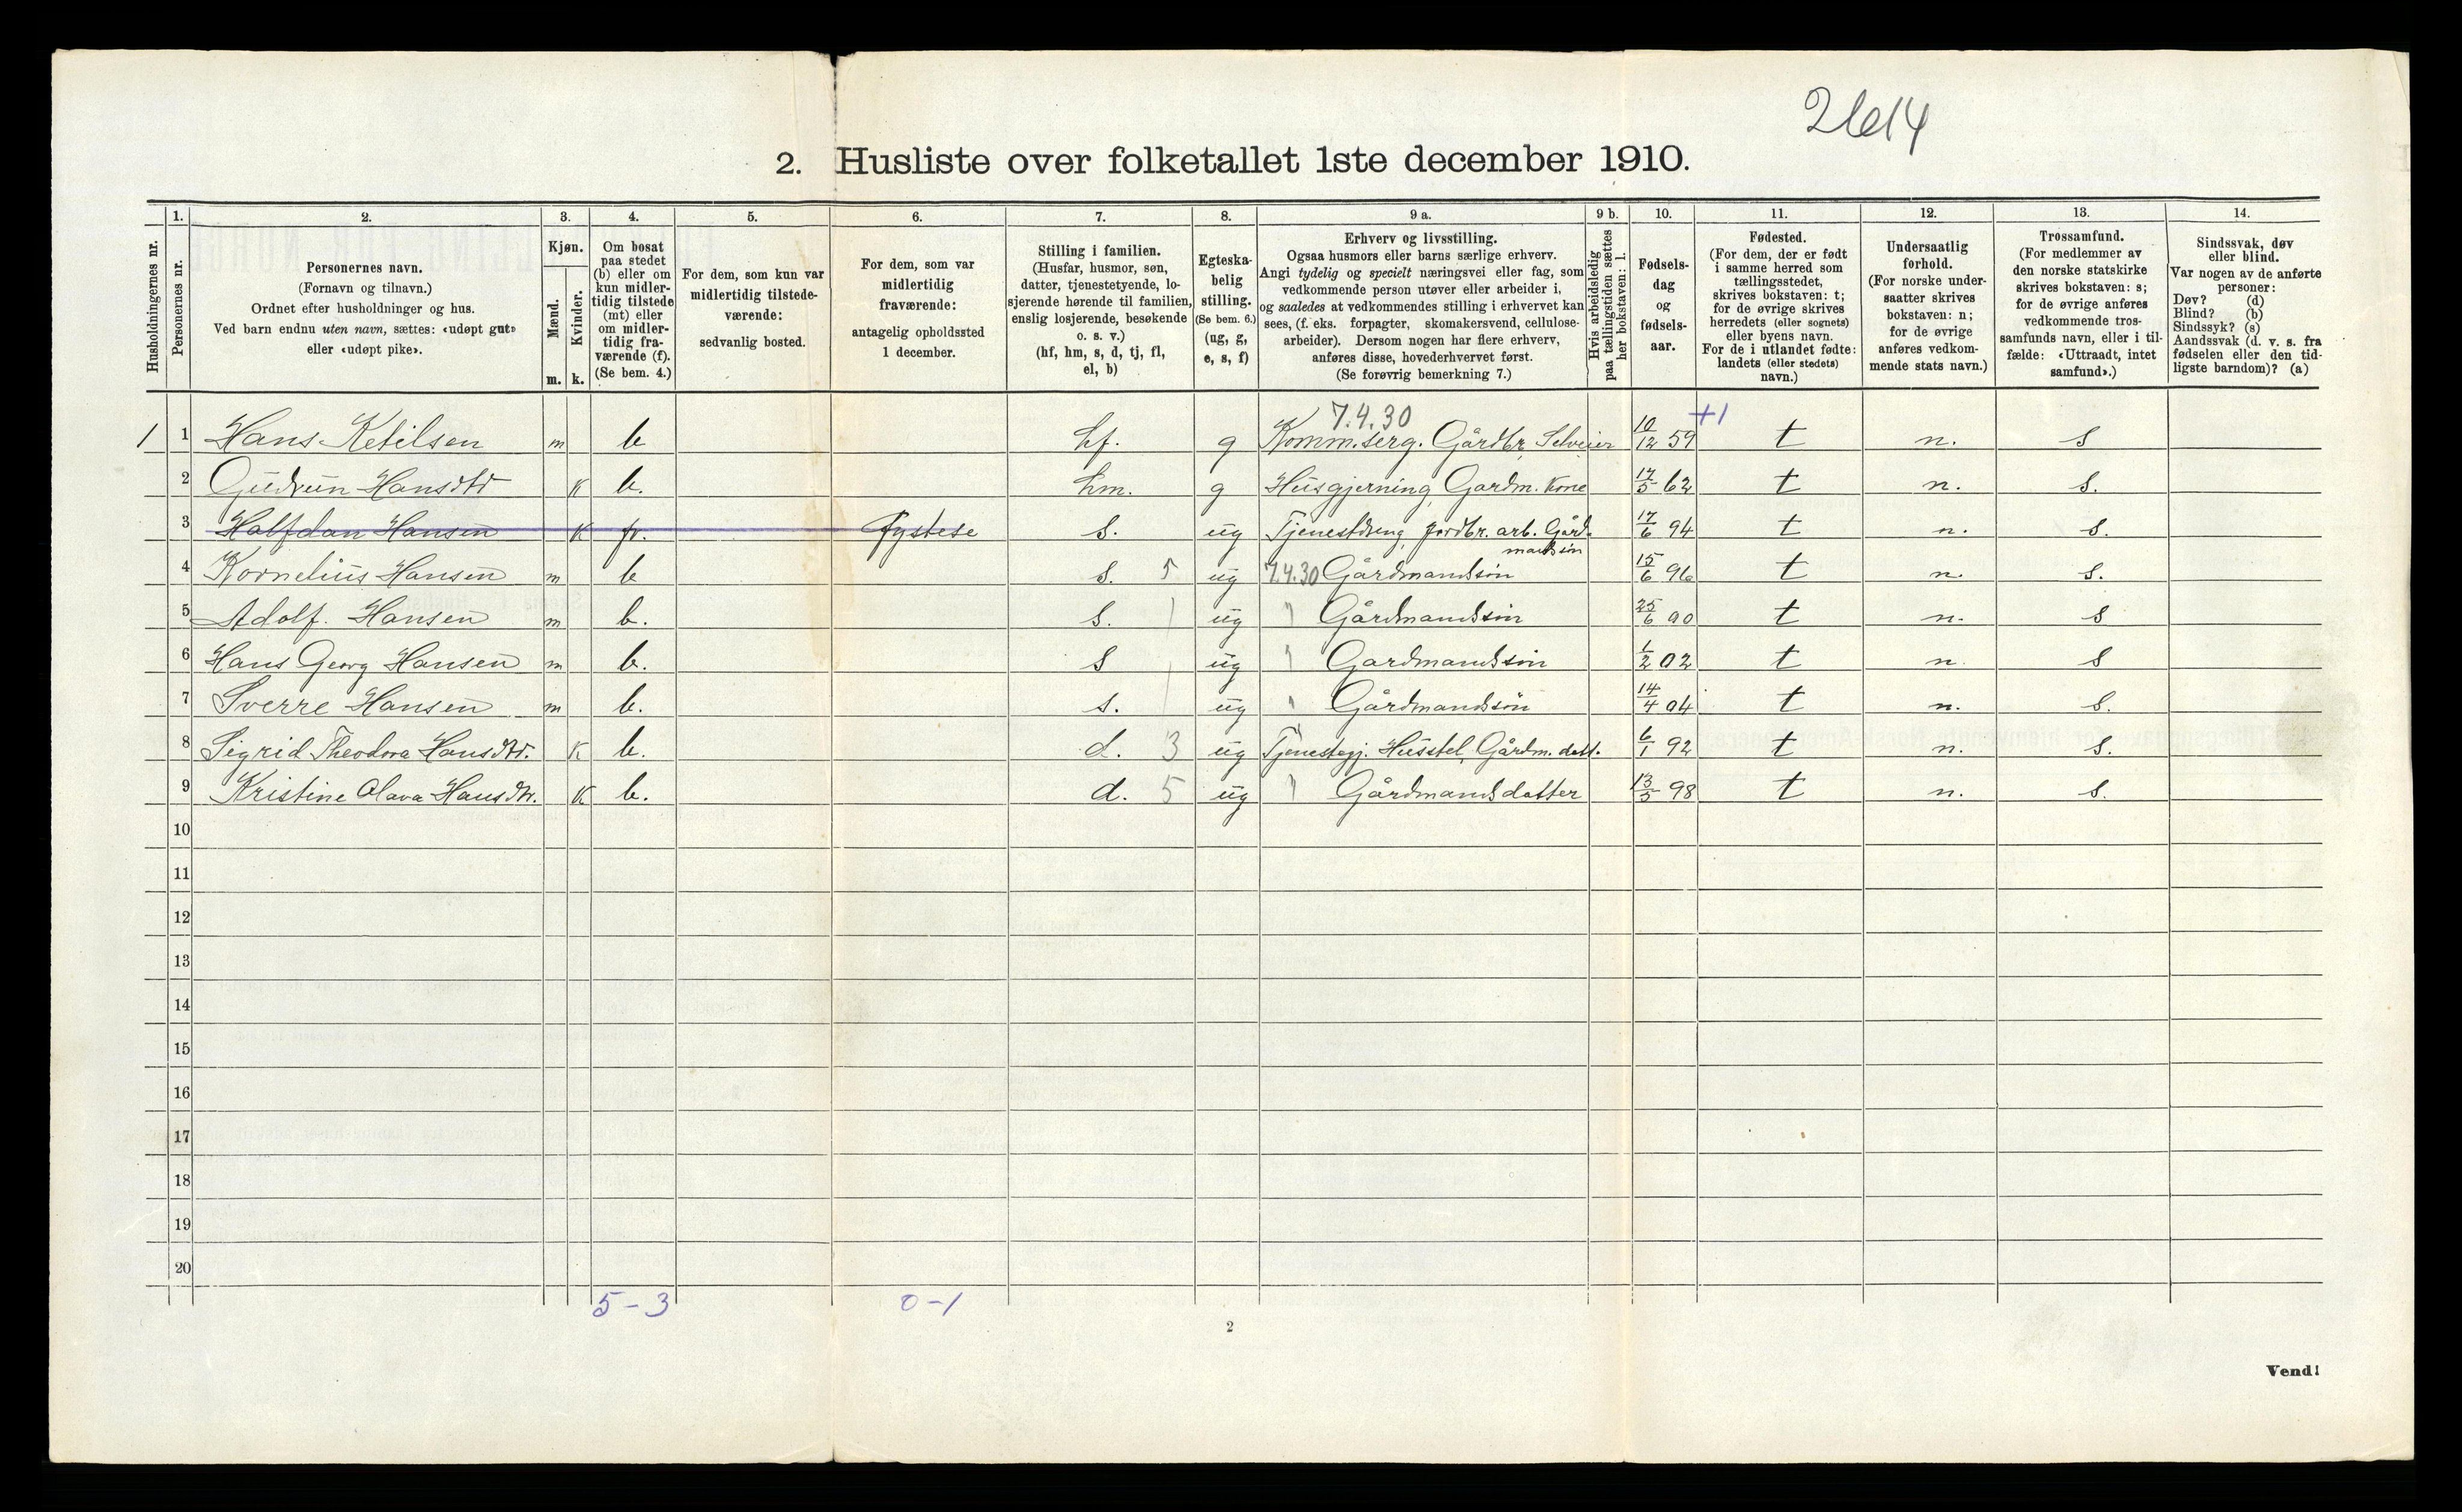 2614
2. Husliste over folketallet 1ste december 1910.
Husholdningernes nr.
1. Personernes nr.
2. Personernes navn.
(Fornavn og tilnavn.)
Ordnet efter husholdninger og hus.
Ved barn endnu uten navn, sættes: «udøpt gut»
eller «udøpt pike».
3. Kjøn.
Mænd. m.
Kvinder. k.
4. Om bosat
paa stedet
(b) eller om
kun midler-
tidig tilstede
(mt) eller
om midler-
tidig fra-
værende (f).
(Se bem. 4.)
5. For dem, som kun var
midlertidig tilstede-
værende:
sedvanlig bosted.
6. For dem, som var
midlertidig
fraværende:
antagelig opholdssted
1 december.
7. Stilling i familien.
(Husfar, husmor, søn,
datter, tjenestetyende, lo-
sjerende hørende til familien,
enslig losjerende, besøkende
o. s. v.)
(hf, hm, s, d, tj, fl,
el, b)
8. Egteska-
belig
stilling.
(Se bem. 6.)
(ug, g,
e, s, f)
9 a. Erhverv og livsstilling.
Ogsaa husmors eller barns særlige erhverv.
Angi tydelig og specielt næringsvei eller fag, som
vedkommende person utøver eller arbeider i,
og saaledes at vedkommendes stilling i erhvervet kan
sees, (f. eks. forpagter, skomakersvend, cellulose-
arbeider). Dersom nogen har flere erhverv,
anføres disse, hovederhvervet først.
(Se forøvrig bemerkning 7.)
9 b. Hvis arbeidsledig
paa tællingstiden sættes
her bokstaven: l.
10. Fødsels-
dag
og
fødsels-
aar.
11. Fødested.
(For dem, der er født
i samme herred som
tællingsstedet,
skrives bokstaven: t;
for de øvrige skrives
herredets (eller sognets)
eller byens navn.
For de i utlandet fødte:
landets (eller stedets)
navn.)
12. Undersaatlig
forhold.
(For norske under-
saatter skrives
bokstaven: n;
for de øvrige
anføres vedkom-
mende stats navn.)
13. Trossamfund.
(For medlemmer av
den norske statskirke
skrives bokstaven: s;
for de øvrige anføres
vedkommende tros-
samfunds navn, eller i til-
fælde: «Uttraadt, intet
samfund».)
14. Sindssvak, døv
eller blind.
Var nogen av de anførte
personer:
Døv? (d)
Blind? (b)
Sindssyk? (s)
Aandssvak (d. v. s. fra
fødselen eller den tid-
ligste barndom)? (a)
7.4.30 +1
1 1 Hans Ketilsen m b hf. g Komm.serg. Gårdbr. Selveier 10/12 59 t n. s
2 Gudrun Hansdtr K b. hm. g Husgjerning, Gardm. Kone 17/5 62 t n. s.
3 Halfdan Hansen K fr. Fystese s. ug Tjenestdreng jordbr. arb. Gård- 17/6 94 t n. s.
mandssøn
4 Kornelius Hansen m b s. 5 ug 7.4.30 Gårdmandssøn 15/6 96 t n. s.
5 Adolf. Hansen m b. s. 1 ug " Gårdmandssøn 25/6 90 t n. s
6 Hans Georg Hansen m b. s ug " Gardmandssøn 1/2 02 t n. s
7 Sverre Hansen m b. s. ug " Gårdmandssøn 14/4 04 t n. s.
8 Sigrid Theodora Hansdtr. K b. d. 3 ug Tjenestegj. Husstel, Gårdm. datt. 6/1 92 t n. s.
9 Kristine Olava Hansdtr. K b. d. 5 ug " Gårdmandsdatter 13/5 98 t n. s.
10
11
12
13
14
15
16
17
18
19
20
5 - 3 0 - 1
2
Vend!